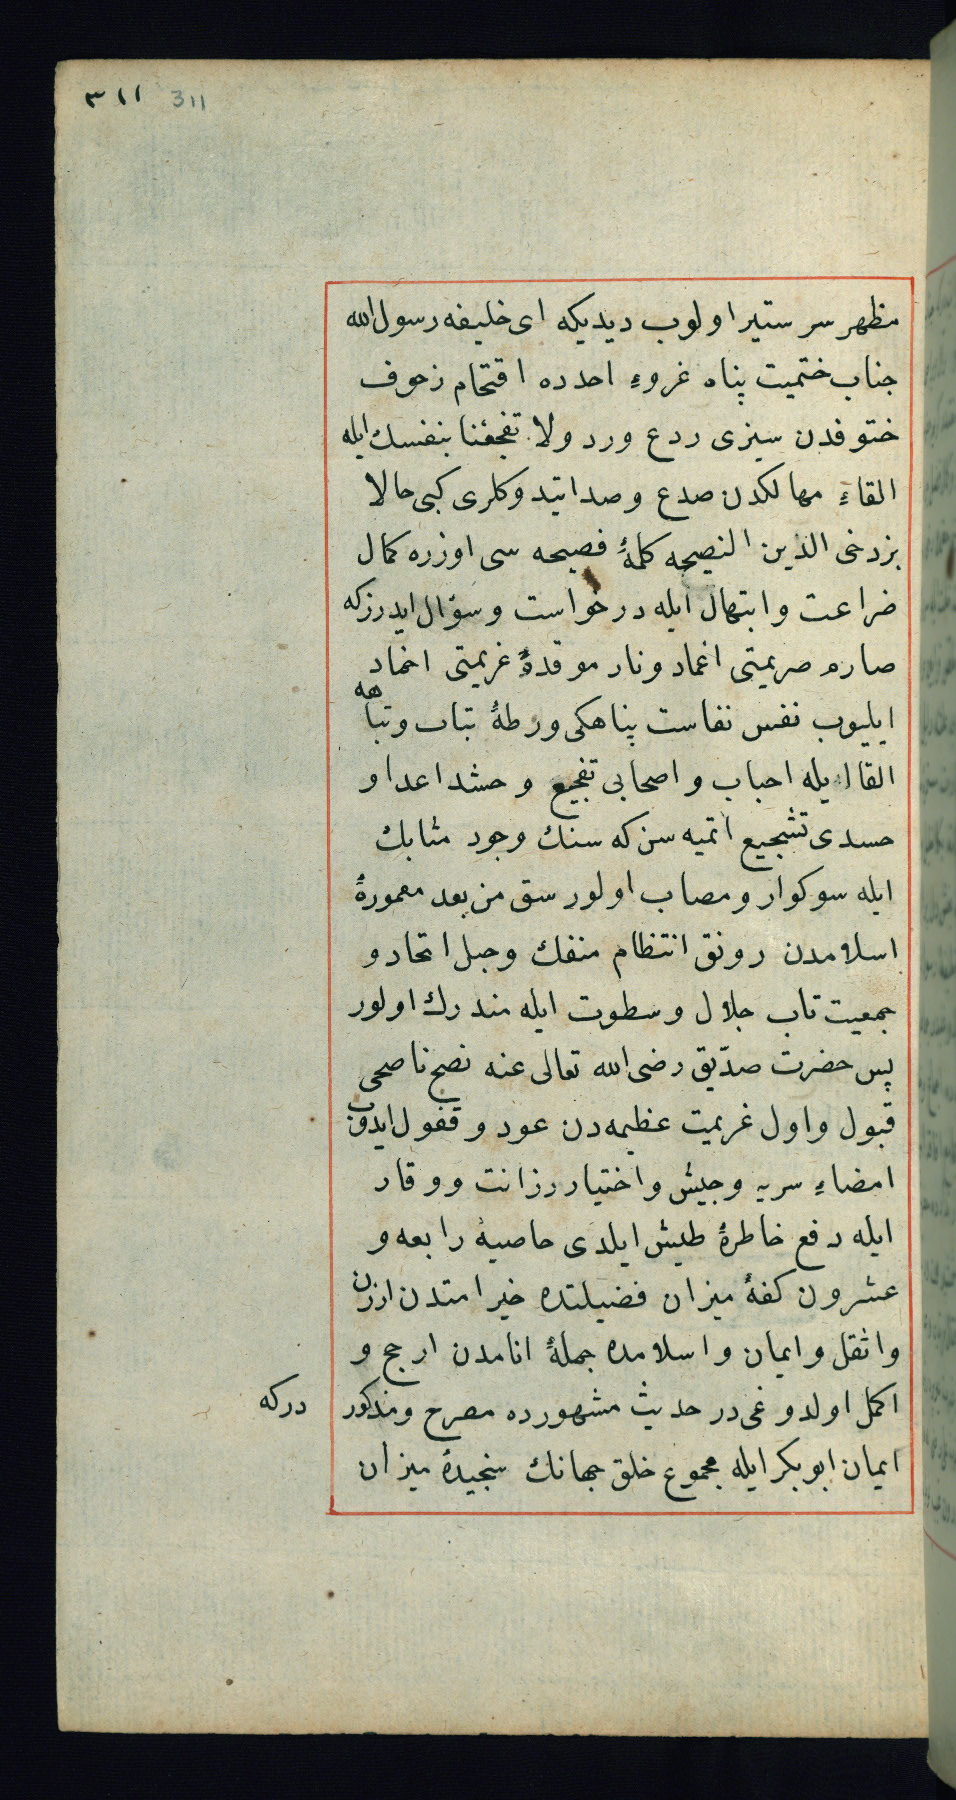 ٣١١ 311
مظهر سر ستير اولوب ديديكه اى خليفه رسول الله
جناب ختميت پناه غزوهٔ احدده اقتحام زحوف
ختوفدن سيزى ردع ورد ولا تفجعنا بنفسك ايله
القاءِ مهالكدن صدع وصد ايتدوكلرى كبى حالا
بزدخى الدين النصيحه كلمهٔ فصيحه سى اوزره كمال
ضراعت وابتهال ايله درخواست وسؤال ايدرزكه
صارم صريمتى اغماد ونار موقدهٔ عزيمتى اخماد
ايليوب نفس نفاست پناهكى ورطهٔ تباب وتباهه
القا ايله احباب واصحابى تفجيع و حشد اعدا و
حسدى تشجيع اتميه سن كه سنك وجود مثابك
ايله سوكوار ومصاب اولورسق من بعد معمورهٔ
اسلامدن رونق انتظام منفك وحبل اتحاد و
جمعيت تاب جلال وسطوت ايله مندرك اولور
پس حضرت صدّيق رضى الله تعالى عنه نصح ناصحى
قبول واول عزيمت عظيمه دن عود وقفول ايدوب
امضاءِ سريه وجيش واختيار رزانت ووقار
ايله دفع خاطرهٔ طيش ايلدى خاصيهٔ رابعه و
عشرون كفهٔ ميزان فضيلتده خير امتدن ارزن
واثقل وايمان واسلامده جملهٔ انامدن ارجح و
اكمل اولدوغى در حديث مشهورده مصرح ومذكور دركه
ايمان ابو بكر ايله مجموع خلق جهانك سنجيدهٔ ميزان